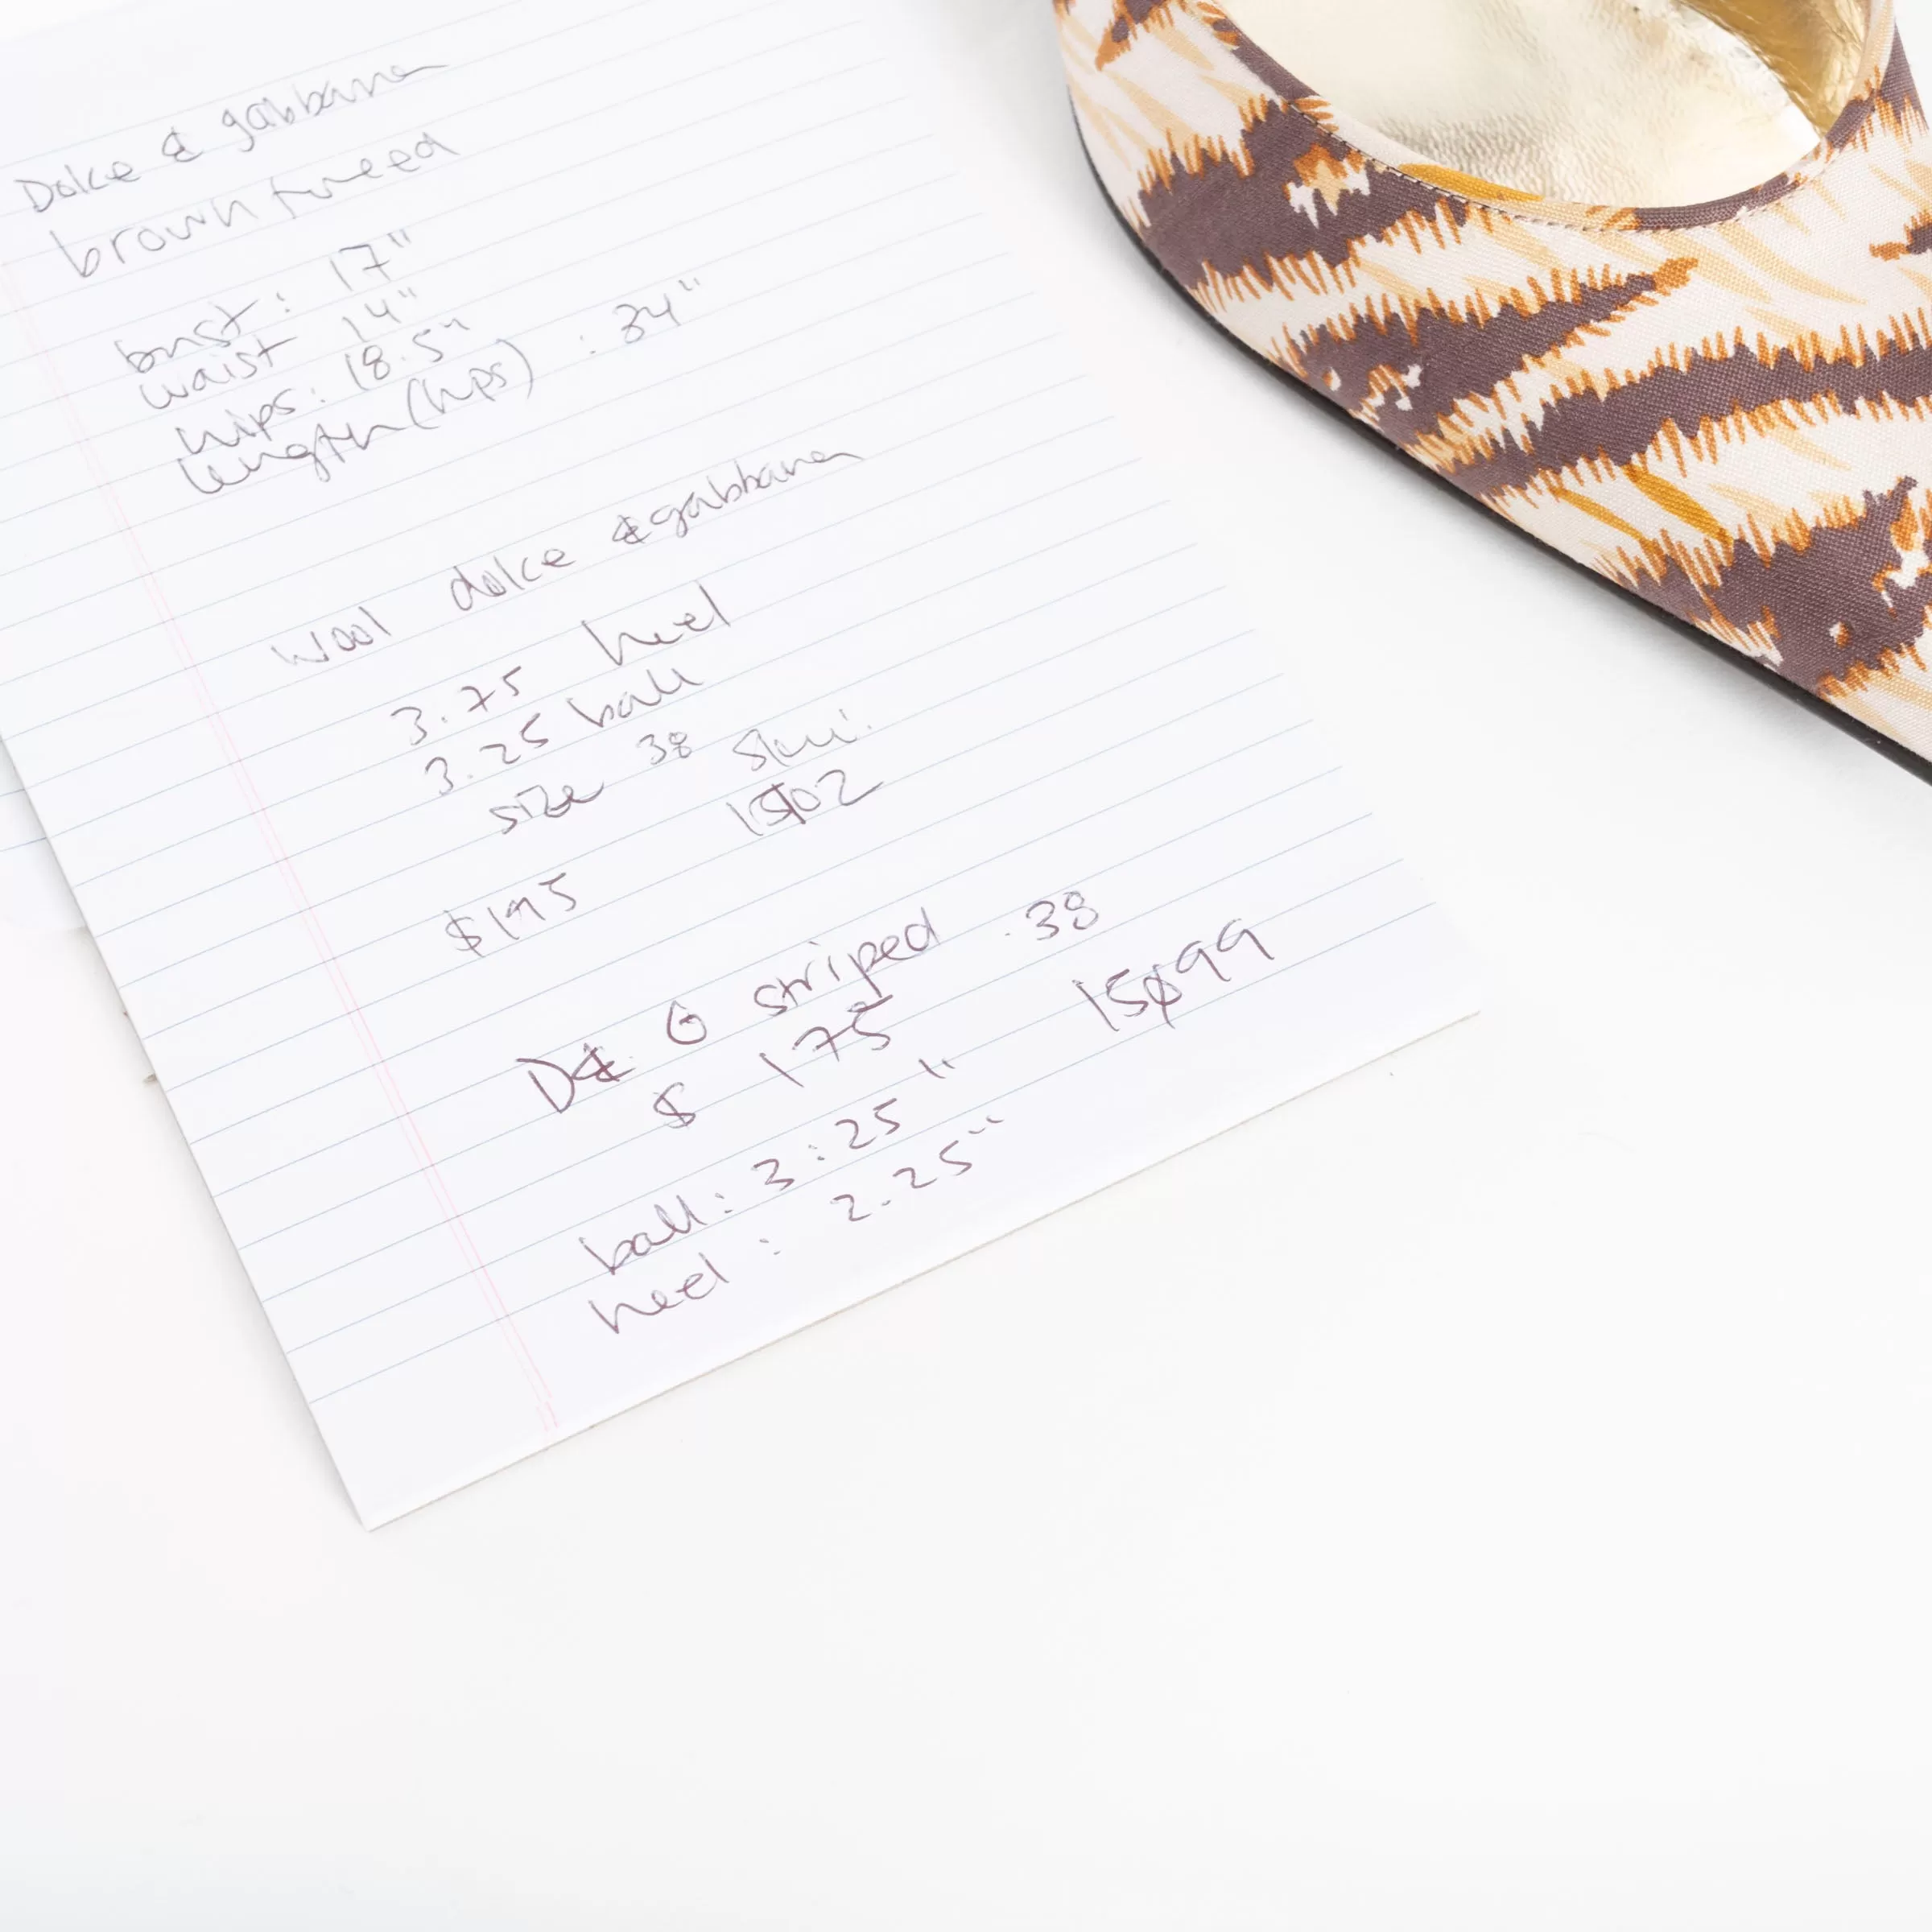 Dolce & gabbana
brown tweed
bust: 17"
waist 14"
hips: 18.5"
length (hps) : 34"
wool dolce & gabbana
3.75 heel
3.25 ball
size 38
$195
D& G striped . 38
$ 175 15099
ball: 3.25"
heel: 2.25"